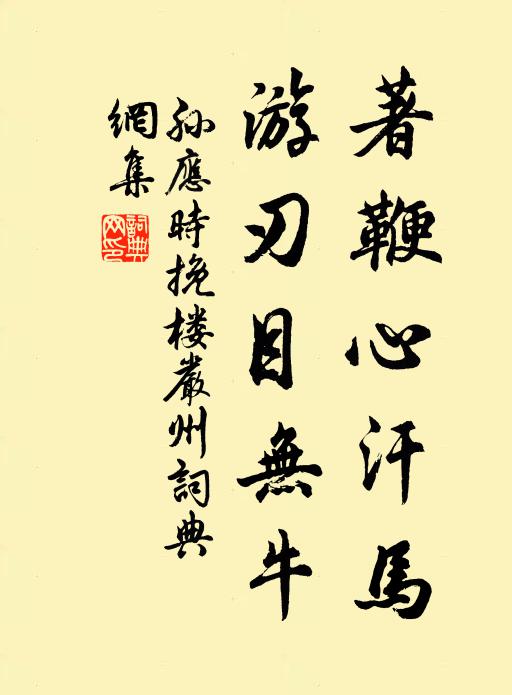 著鞭心汗馬
游刃目無牛
孙應時挽楼嚴州詞典
網集
詞典網印